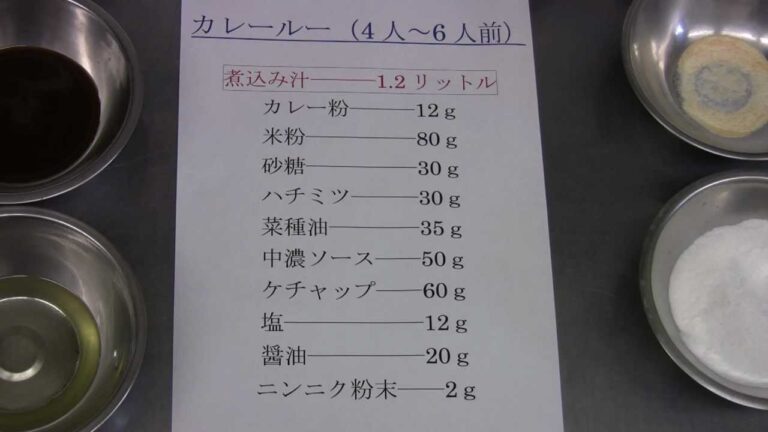 カレールー（4人～6人前）
煮込み汁―――1.2リットル
カレー粉―――12g
米粉―――――80g
砂糖―――――30g
ハチミツ―――30g
菜種油――――35g
中濃ソース――50g
ケチャップ――60g
塩――――――12g
醤油―――――20g
ニンニク粉末――2g